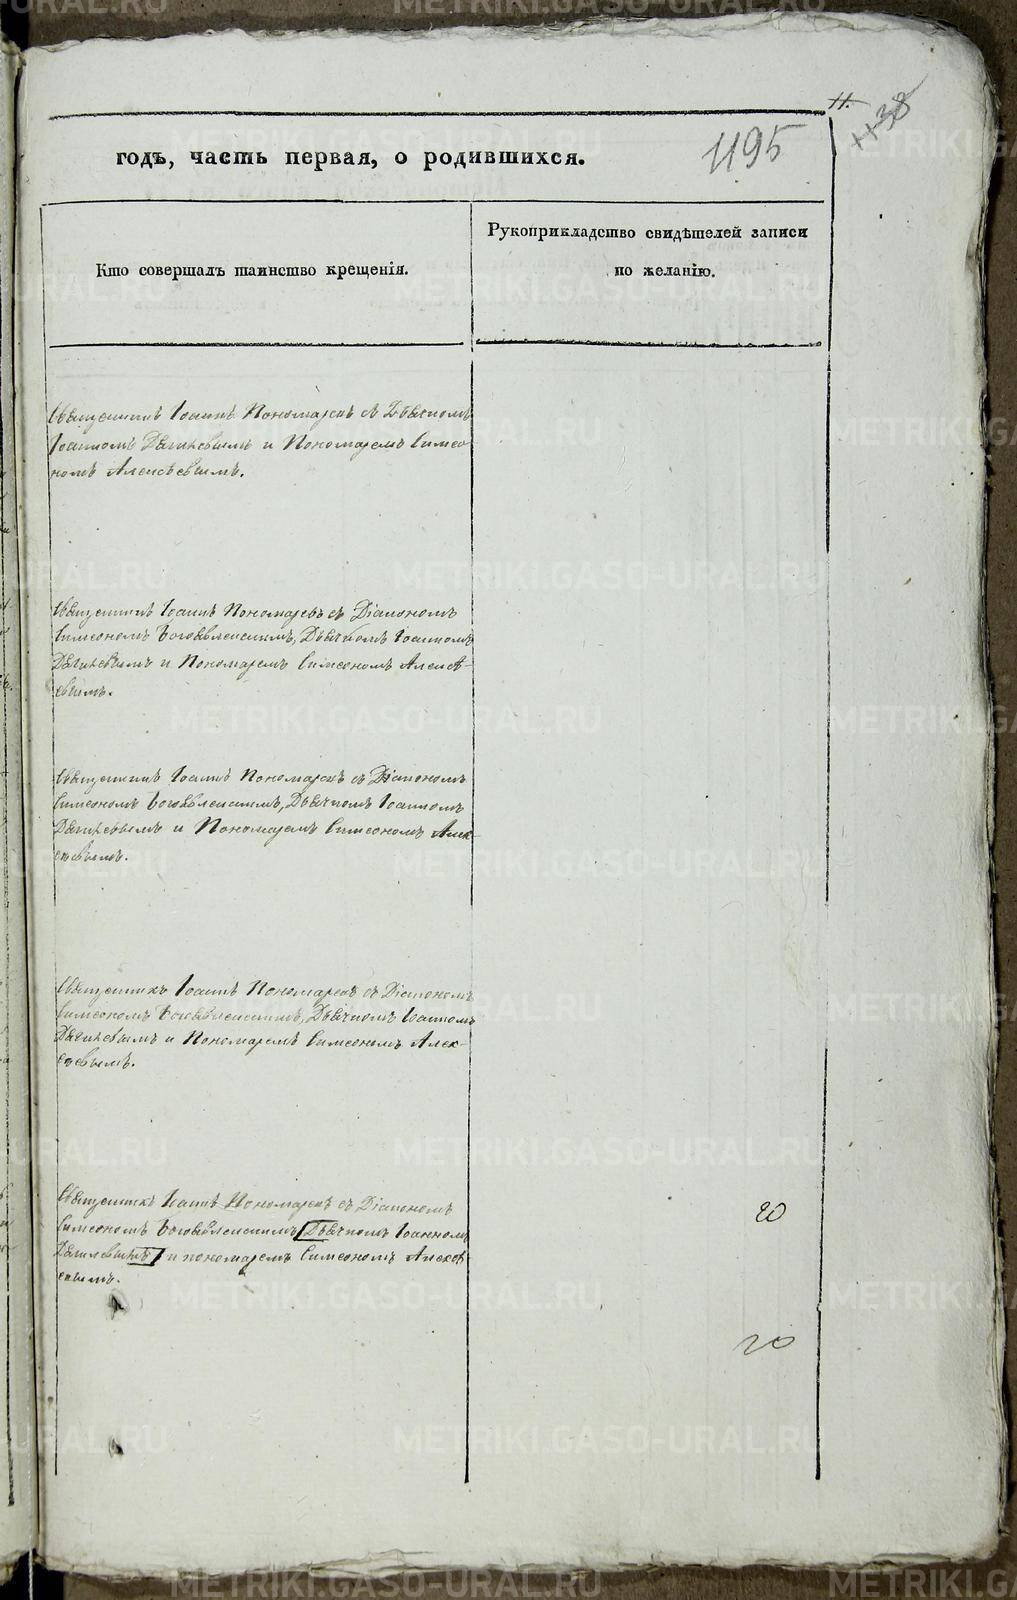 11.
1138
1195
годъ, часть первая, о родившихся.
Кто совершалъ таинство крещенія.
Рукоприкладство свидѣтелей записи
по желанію.
Священникъ Іоаннъ Пономаревъ съ Дьячкомъ
Іоанномъ Дягилевымъ и Пономаремъ Симео-
номъ Алексѣевымъ.
Священникъ Іоаннъ Пономаревъ съ Діакономъ
Симеономъ Богоявленскимъ, Дьячкомъ Іоанномъ
Дягилевымъ и Пономаремъ Симеономъ Алексѣ-
евымъ.
Священникъ Іоаннъ Пономаревъ съ Діакономъ
Симеономъ Богоявленскимъ, Дьячкомъ Іоанномъ
Дягилевымъ и Пономаремъ Симеономъ Алек-
сѣевымъ.
Священникъ Іоаннъ Пономаревъ съ Діакономъ
Симеономъ Богоявленскимъ, Дьячкомъ Іоанномъ
Дягилевымъ и Пономаремъ Симеономъ Алек-
сѣевымъ.
Священникъ Іоаннъ Пономаревъ съ Діакономъ
Симеономъ Богоявленскимъ Дьячкомъ Іоанномъ
Дягилевымъ и пономаремъ Симеономъ Алексѣ
евымъ.
20
20
METRIKI.GASO-URAL.RU